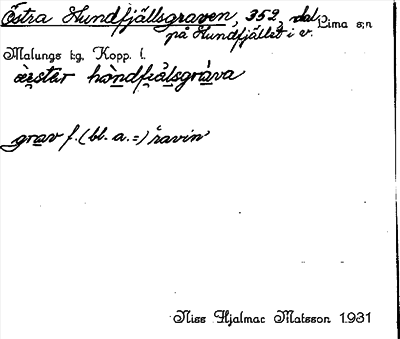 Östra Hundfjällsgraven, 352, dal Lima s:n
på Hundfjället i v.
Malungs t:g, Kopp. l.
æ̀stər hòndfiälsgráva
grav f. (bl. a. =) ravin
Nils Hjalmar Matsson 1931